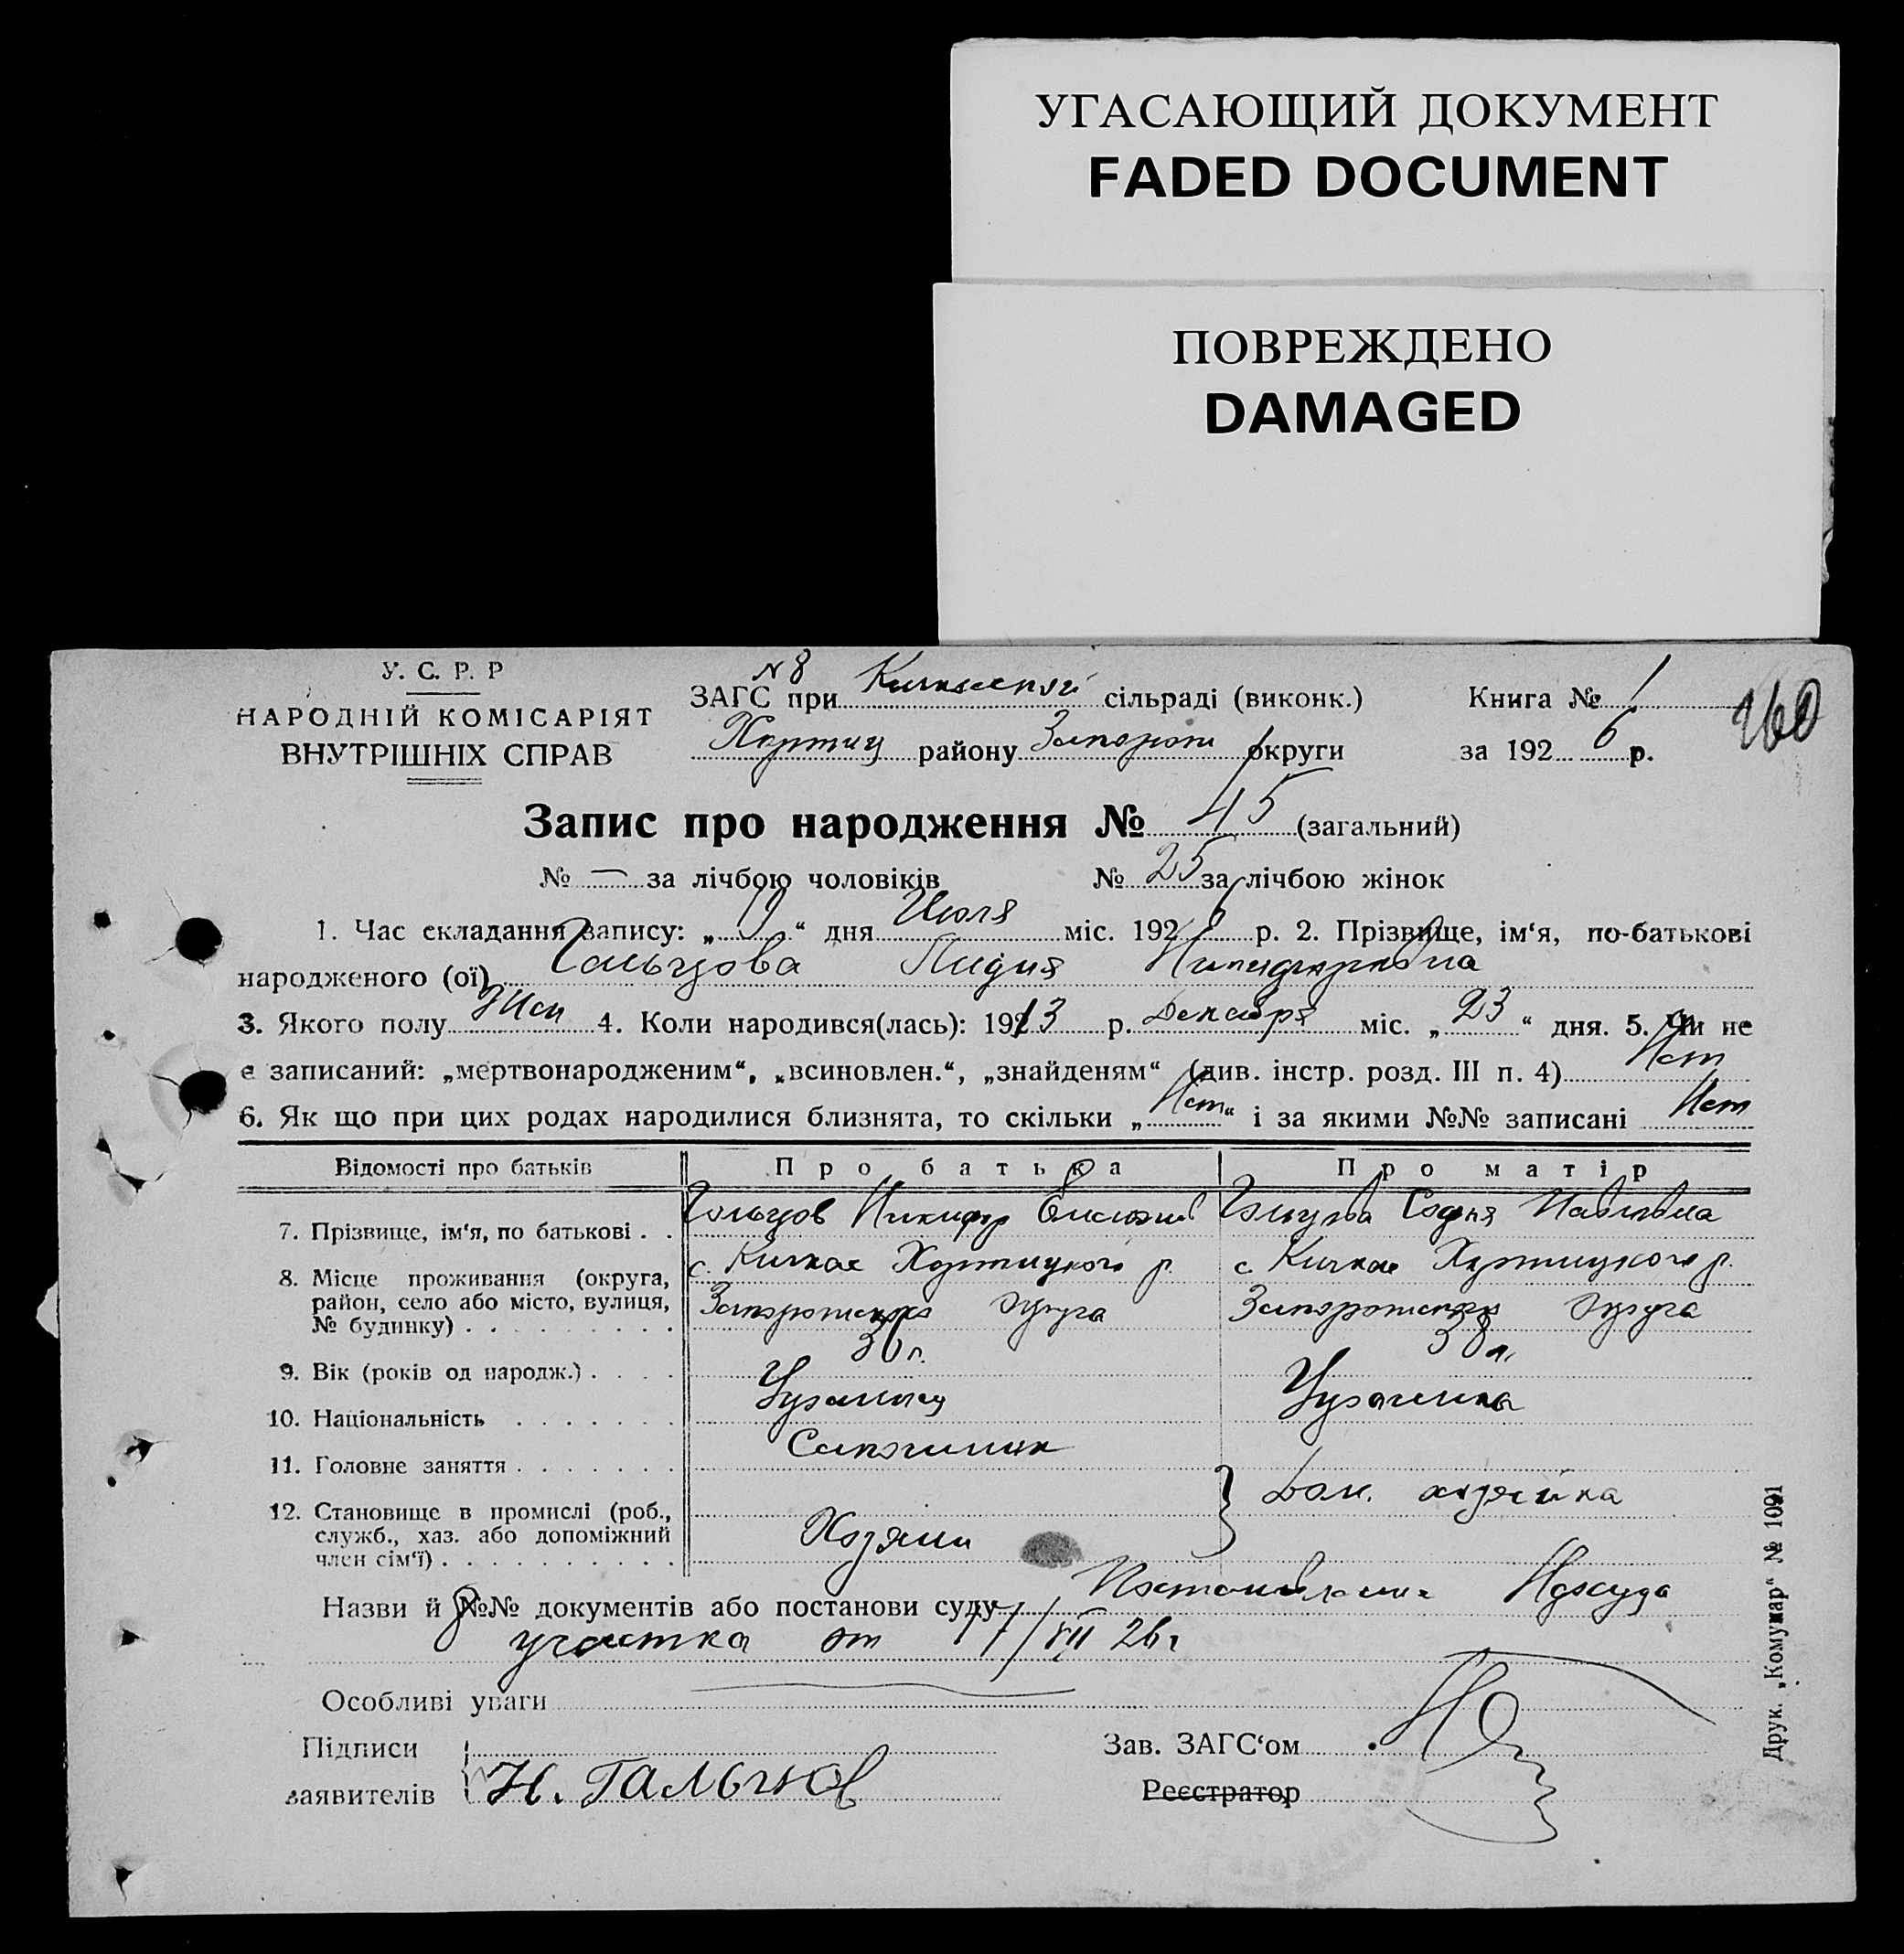 УГАСАЮЩИЙ ДОКУМЕНТ
FADED DOCUMENT
ПОВРЕЖДЕНО
DAMAGED
У. С. Р. Р
НАРОДНІЙ КОМІСАРІЯТ
ВНУТРІШНІХ СПРАВ
N 8
ЗАГС при Кичкасскій сільраді (виконк.) Книга № 1
Хортиц району Запорож округи за 192 6 р.
160
Запис про народження № 45 (загальний)
№ — за лічбою чоловіків № 25 за лічбою жінок
1. Час складання запису: „ “ дня Июля міс. 192 6 р. 2. Прізвище, ім‘я, по-батькові
народженого (ої) Гольцова Лидия Никифоровна
3. Якого полу Жен 4. Коли народився(лась): 1913 р. Декабря міс. „ 23 “ дня. 5. Чи не
є записаний: „мертвонародженим“, „всиновлен.“, „знайденям“ (див. інстр. розд. III п. 4) Нет
6. Як що при цих родах народилися близнята, то скільки „ Нет “ і за якими №№ записані Нет
Відомості про батьків Про батька Про матір
7. Прізвище, ім‘я, по батькові . . Гольцов Никифор Гольцова Софья Павловна
8. Місце проживання (округа, с. Кичкас Хортицкого р. с. Кичкас Хортицкого р.
район, село або місто, вулиця, Запорожская округа Запорожская округа
№ будинку)
9. Вік (років од народж.) 36 г. 38 л.
10. Національність Украинец Украинка
11. Головне заняття Сапожник Дом. хозяйка
12. Становище в промислі (роб.,
служб., хаз. або допоміжний Хозяин
член сім‘ї)
Назви й №№ документів або постанови суду Постановление Нарсуда
8 участка от 17/VII 26 г
Особливі уваги
Підписи
заявителів Н. Гальцов
Зав. ЗАГС‘ом
Реєстратор
Друк. „Комунар“ № 1091